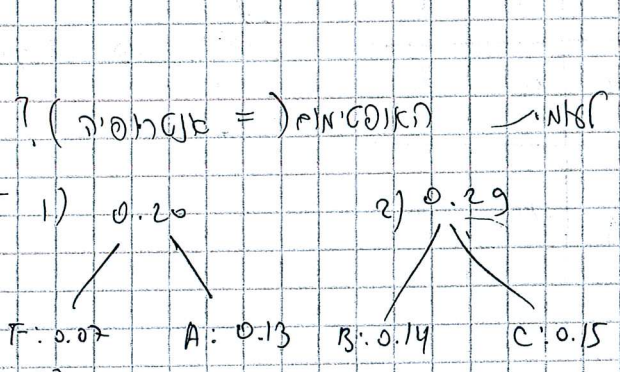 האופטימום (= אנטרופיה)?
1) 0.20 2) 0.29
F: 0.07 A: 0.13 B: 0.14 C: 0.15